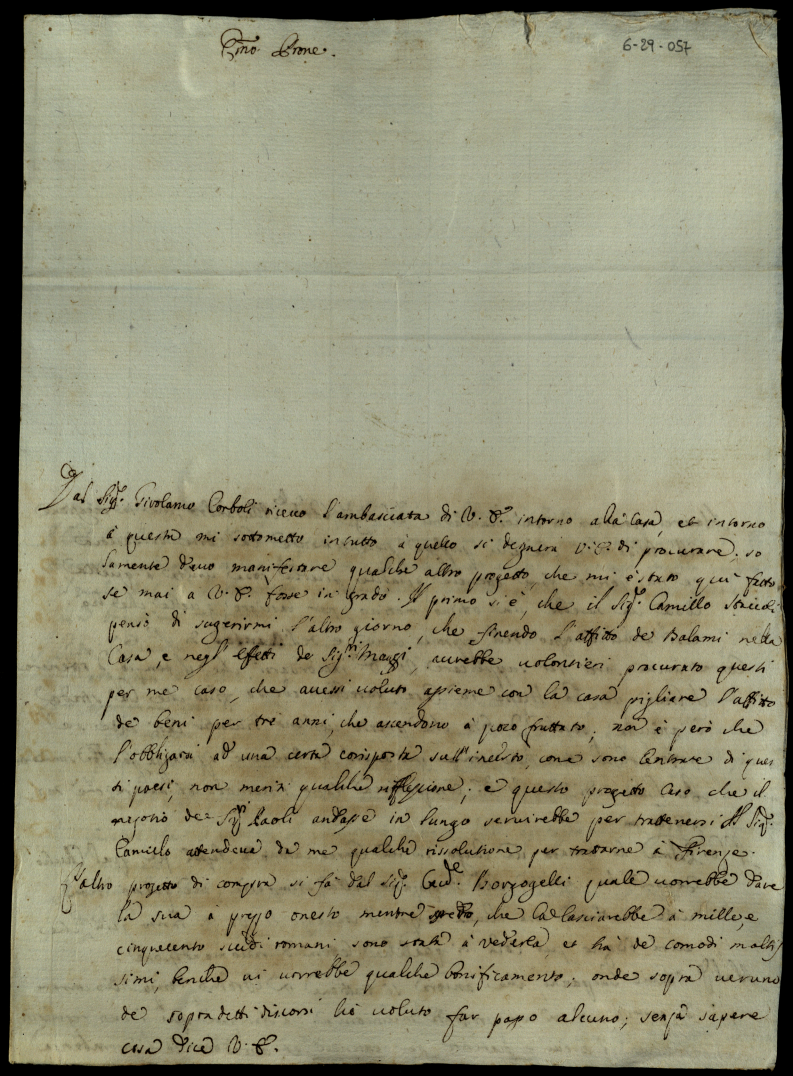 Pmo Prone.
6-29-057
Dal Sigr. Girolamo Corboli ricevo l'ambasciata di V. E. intorno alla Casa, et intorno
à questa mi sottometto in tutto à quello si degnerà V. E. di procurare; so
lamente devo manifestare qualche altro progetto, che mi è stato quì fatto
se mai a V. E. fosse in grado. Il primo si è, che il Sigr. Camillo Staccoli
pensò di sugerirmi l'altro giorno, che finendo l'affitto de Balami nella
Casa, e negl'effetti de Sigri. Mazzi, avrebbe volontieri procurato questi
per me caso, che avessi voluto assieme con la casa pigliare l'affitto
de beni per trè anni, che ascendono à poco fruttato; non è però che
l'obbligarsi ad una certa corisposta sull'incerto, come sono l'entrate di ques
ti paesi, non meriti qualche riflessione; e questo progetto caso che il
negotio de Sigri Paoli andasse in lungo servirebbe per trattenersi. Il Sigr.
Camillo attendeva da me qualche rissolutione per trattarne à Firenze.
L'altro progetto di compra si fà dal Sigr. Borgogelli quale vorrebbe dare
la sua à prezzo onesto mentre credo, che la lasciarebbe à mille, e
cinquecento scudi romani sono stata à vederla, et hà de comodi maltis
simi, benche vi vorrebbe qualche bonificamento; onde sopra veruno
de sopradetti discorsi hò voluto far passo alcuno; senza sapere
cosa dice V. E.